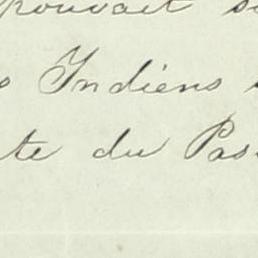 pouvait
Indiens
te du Pas